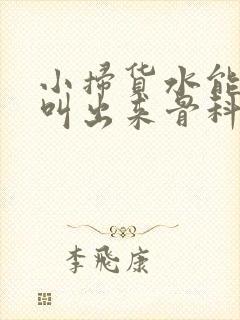 小掃貨水能
叫出来骨科
李飛康